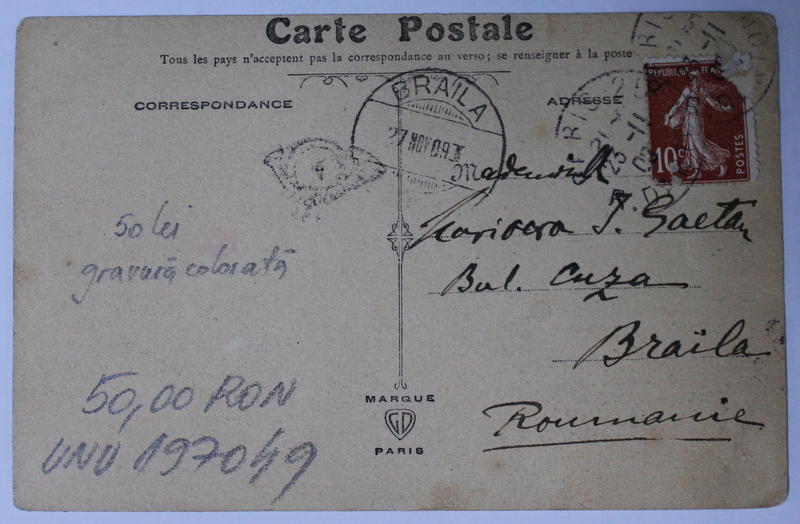 Carte Postale
Tous les pays n'acceptent pas la correspondance au verso; se renseigner à la poste
CORRESPONDANCE
ADRESSE
BRAILA
27 NOV 09
10c
POSTES
Mademoiselle
J. Gaetan
Bul. Cuza
Braïla
Roumanie
50 lei
gravură colorată
50,00 RON
UNU 197049
MARQUE
GD
PARIS